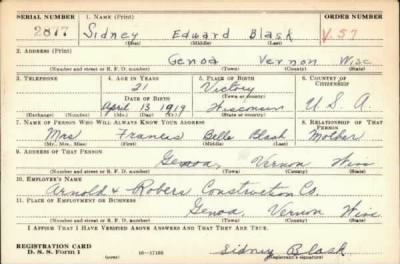 SERIAL NUMBER 1. NAME (Print) ORDER NUMBER
2817 Sidney Edward Blask V.57
(First) (Middle) (Last)
2. ADDRESS (Print)
Genoa Vernon Wisc
(Number and street or R. F. D. number) (Town) (County) (State)
3. TELEPHONE 4. AGE IN YEARS 5. PLACE OF BIRTH 6. COUNTRY OF CITIZENSHIP
21 Victory
DATE OF BIRTH (Town or county)
April 13 1919 Wisconsin U.S.A.
(Exchange) (Number) (Mo.) (Day) (Yr.) (State or country)
7. NAME OF PERSON WHO WILL ALWAYS KNOW YOUR ADDRESS 8. RELATIONSHIP OF THAT PERSON
Mrs Frances Belle Blask Mother
(Mr., Mrs., Miss) (First) (Middle) (Last)
9. ADDRESS OF THAT PERSON
Genoa, Vernon Wiss
(Number and street or R. F. D. number) (Town) (County) (State)
10. EMPLOYER'S NAME
Arnold & Robers Construction Co.
11. PLACE OF EMPLOYMENT OR BUSINESS
Genoa, Vernon Wisc
(Number and street or R. F. D. number) (Town) (County) (State)
I AFFIRM THAT I HAVE VERIFIED ABOVE ANSWERS AND THAT THEY ARE TRUE.
REGISTRATION CARD
D. S. S. Form 1 16-17105 Sidney Blask
(Registrant's signature)